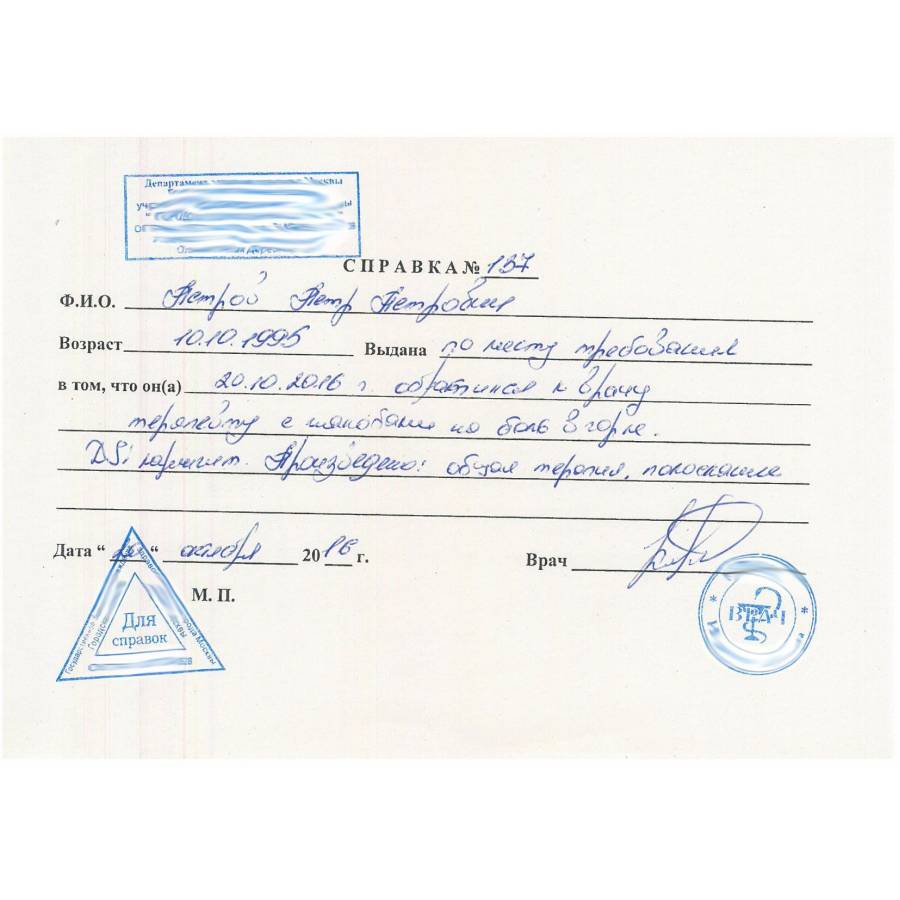 Департамен Москвы
СПРАВКА № 137
Ф.И.О. Петров Петр Петрович
Возраст 10.10.1995 Выдана по месту требования
в том, что он(а) 20.10.2016 г. обратился к врачу
терапевту с жалобами на боль в горле.
DS: ларингит. Произведено: общая терапия, полоскание
Дата “ 20 “ октября 20 16 г. Врач
М. П.
Для
справок
Государственное
Городск
города Москвы
ВРАЧ